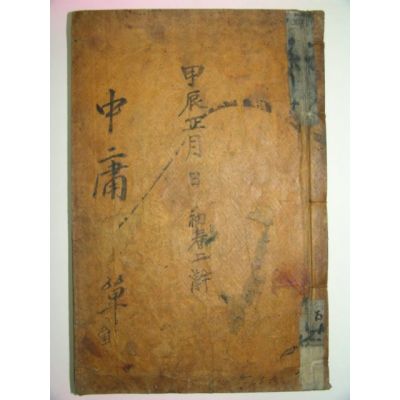 甲辰正月 日 初春上澣
中庸 單